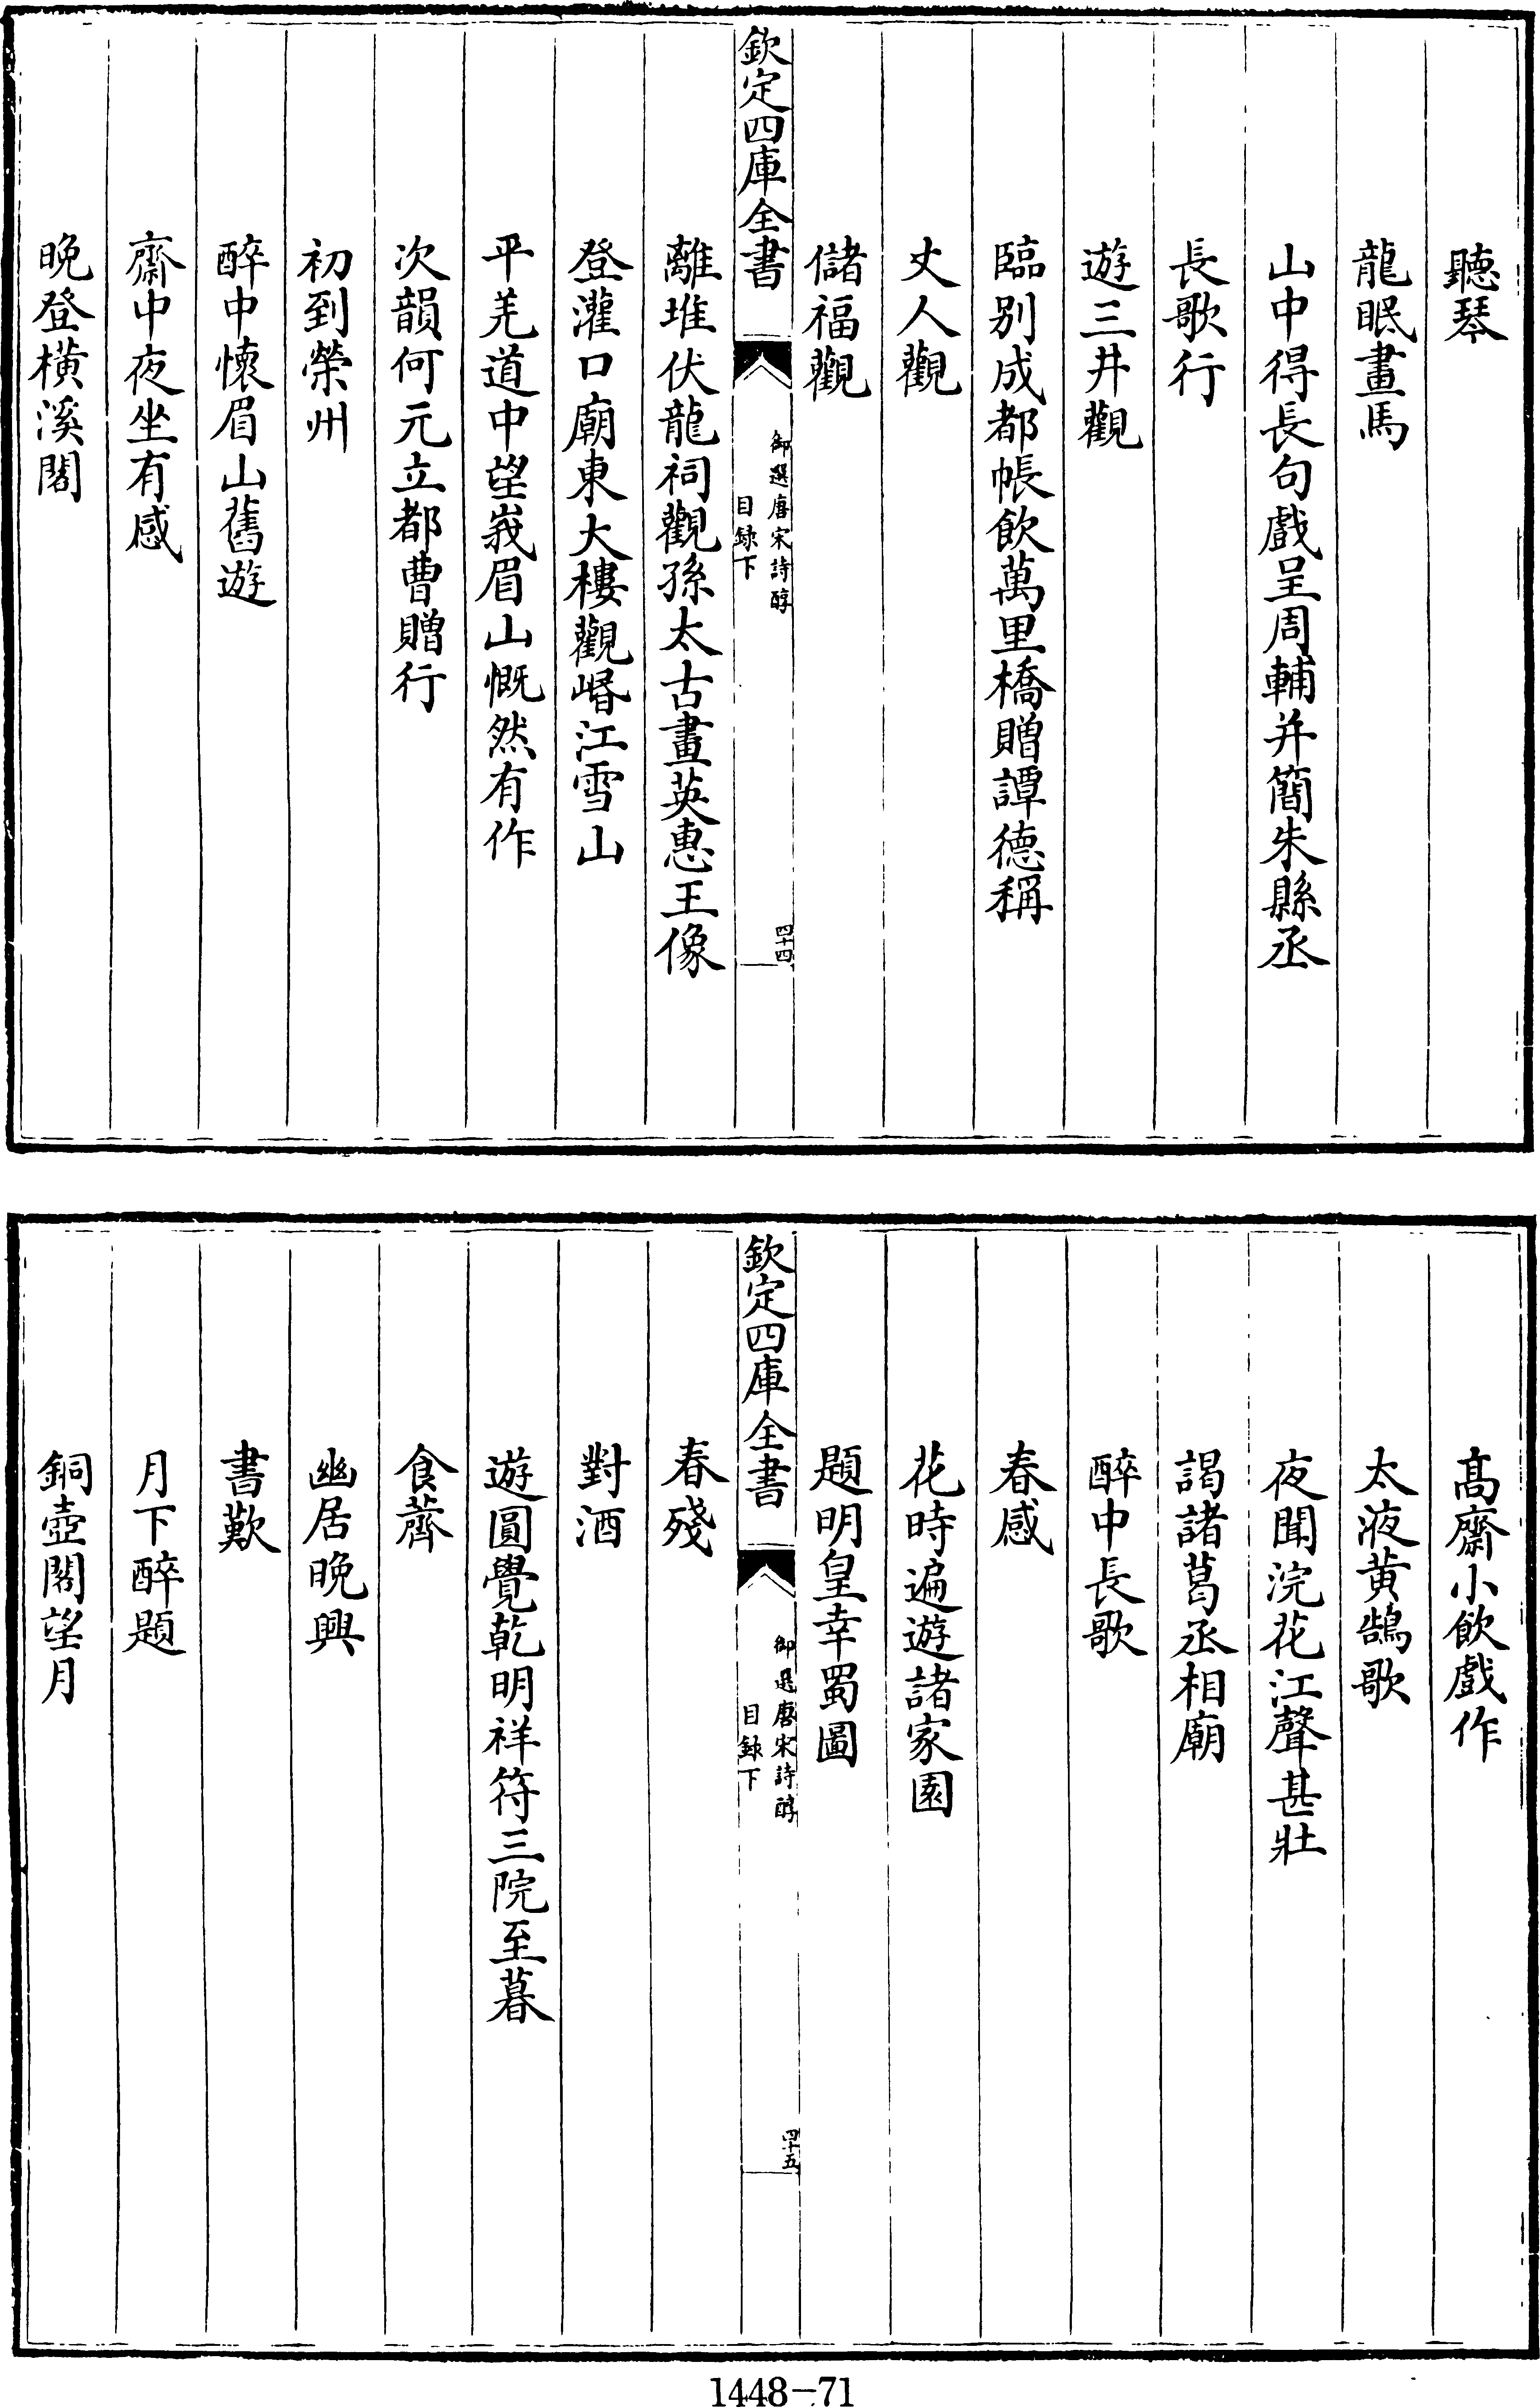 聽琴
龍眠畫馬
山中得長句戲呈周輔并簡朱縣丞
長歌行
遊三井觀
臨别成都帳飲萬里橋贈譚德稱
丈人觀
儲福觀
欽定四庫全書
御選唐宋詩醇
目録下
四十四
離堆伏龍祠觀孫太古畫英惠王像
登灌口廟東大樓觀㟭江雪山
平羌道中望峩眉山慨然有作
次韻何元立都曹贈行
初到榮州
醉中懷眉山舊遊
齋中夜坐有感
晚登横溪閣
髙齋小飲戲作
太液黄鵠歌
夜聞浣花江聲甚壯
謁諸葛丞相廟
醉中長歌
春感
花時遍遊諸家園
題明皇幸蜀圖
欽定四庫全書
御選唐宋詩醇
目録下
四十五
春殘
對酒
遊圓覺乾明祥符三院至暮
食薺
幽居晚興
書歎
月下醉題
銅壺閣望月
1448-71